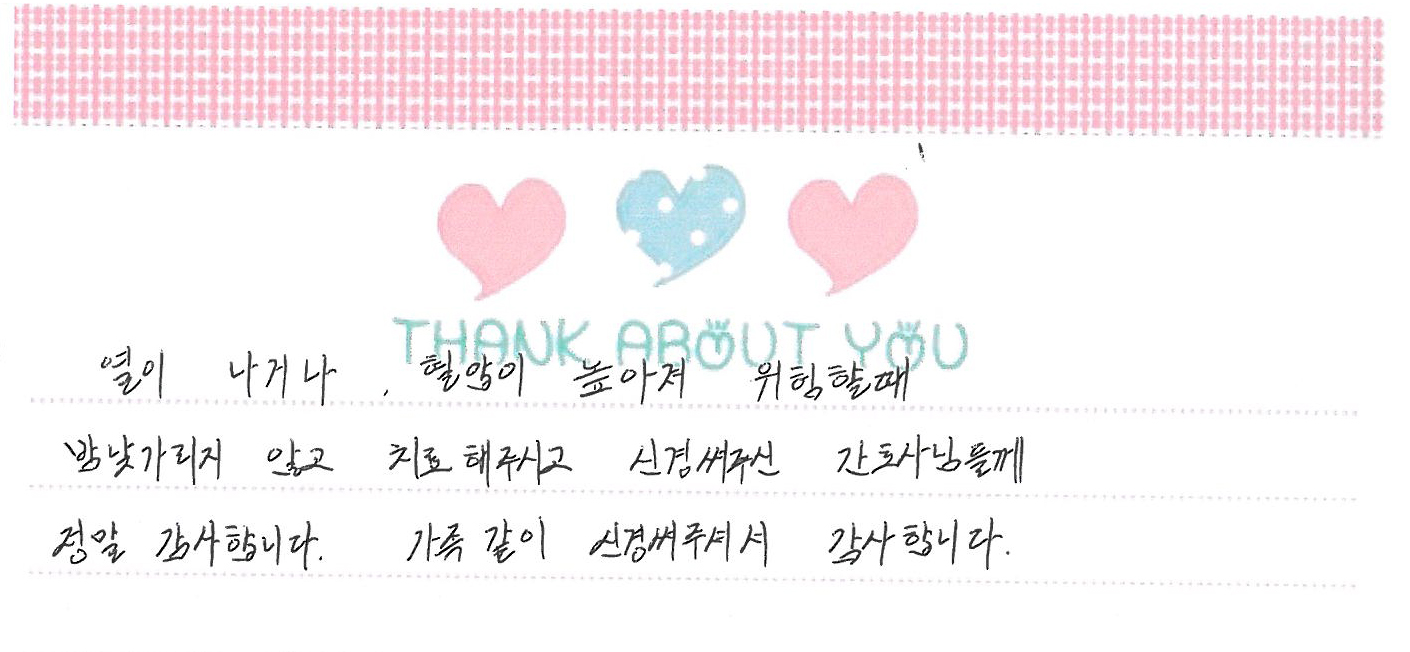 THANK ABOUT YOU
열이 나거나, 혈압이 높아져 위험할때
밤낮가리지 않고 치료해주시고 신경써주신 간호사님들께
정말 감사합니다. 가족같이 신경써주셔서 감사합니다.